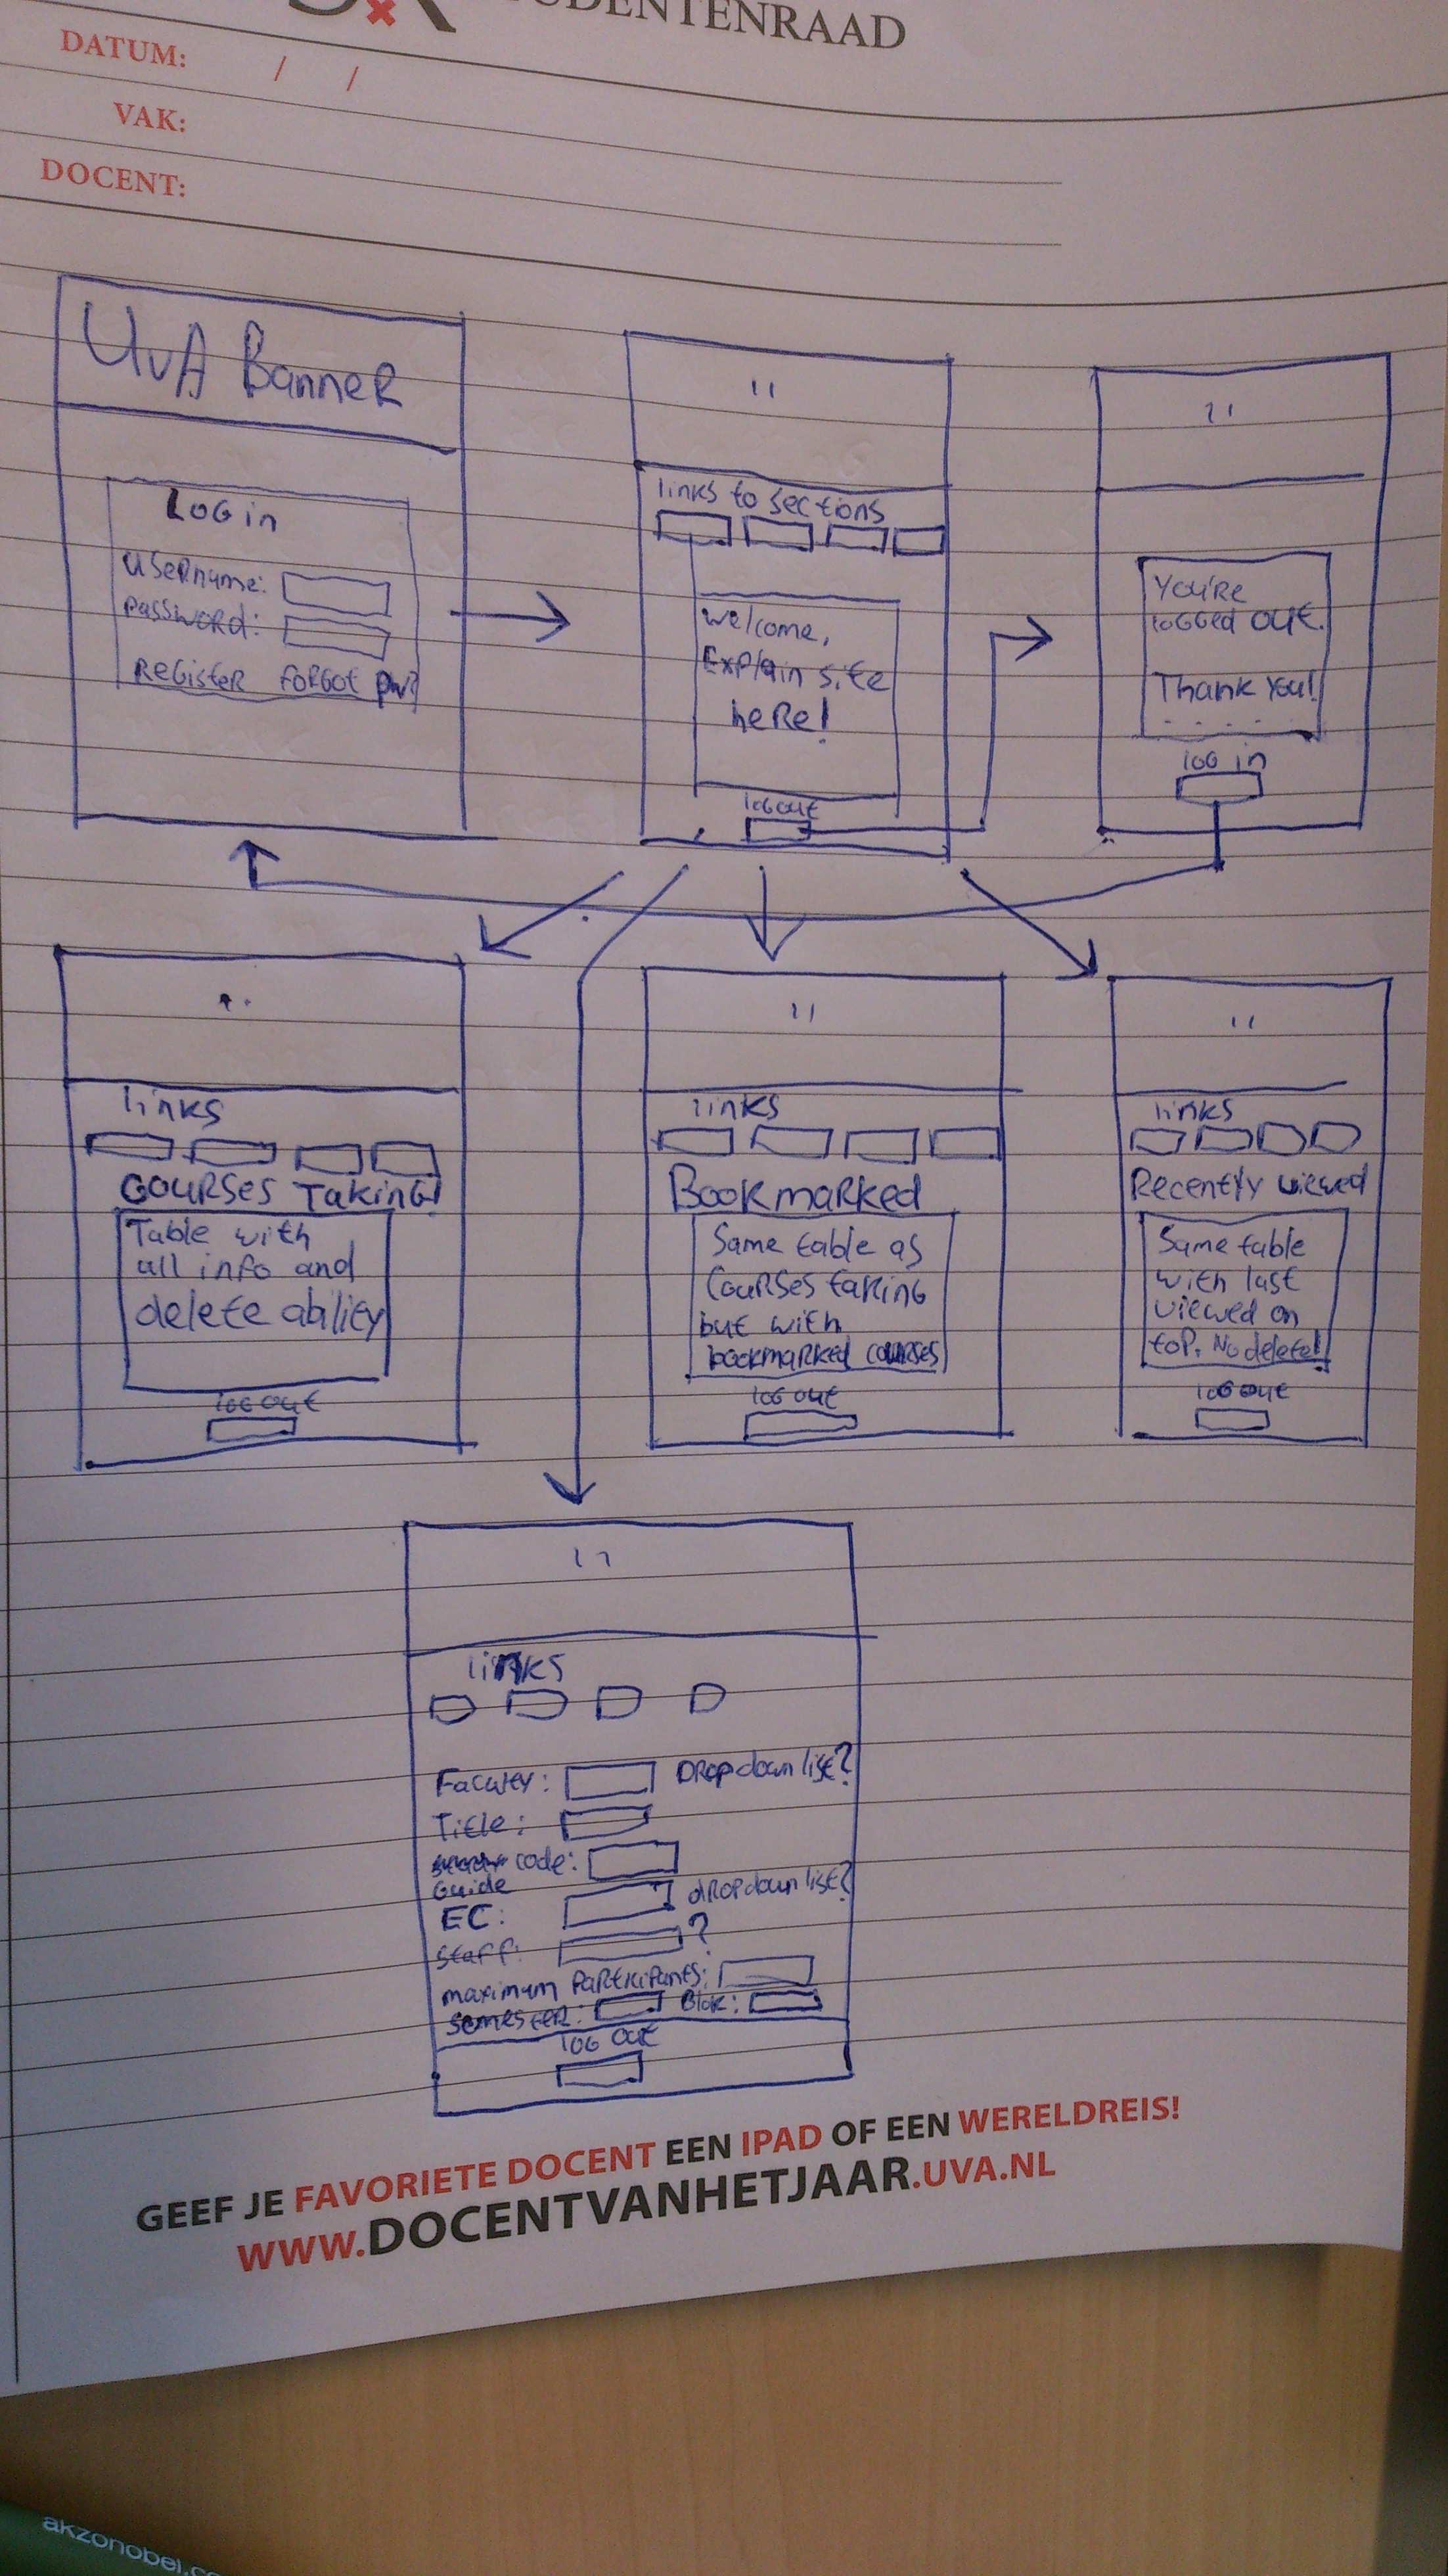 STUDENTENRAAD
DATUM: / /
VAK:
DOCENT:
UvA Banner
Login
Username:
Password:
Register Forgot pw?
"
links to sections
Welcome,
Explain site
here!
log out
"
You're
logged out.
Thank you!
. . . . .
log in
"
links
Courses Taking!
Table with
all info and
delete ability
log out
"
links
Bookmarked
Same table as
Courses taking
but with
bookmarked courses
log out
"
links
Recently viewed
Same table
with last
viewed on
top. No delete!
log out
"
links
Faculty: Dropdown list?
Title:
code:
Guide
EC: dropdown list?
Staff: ?
maximum Participants:
semester: Blok:
log out
GEEF JE FAVORIETE DOCENT EEN IPAD OF EEN WERELDREIS!
WWW.DOCENTVANHETJAAR.UVA.NL
akzonobel.co